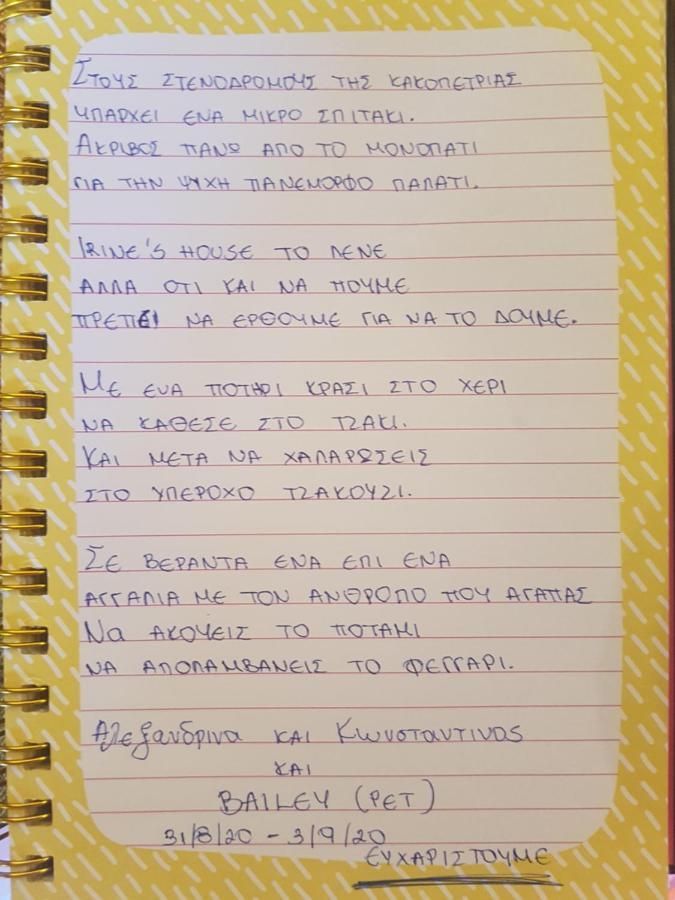 Στους ΣΤΕΝΟΔΡΟΜΟΥΣ ΤΗΣ ΚΑΚΟΠΕΤΡΙΑΣ
ΥΠΑΡΧΕΙ ΕΝΑ ΜΙΚΡΟ ΣΠΙΤΑΚΙ.
ΑΚΡΙΒΟΣ ΠΑΝΩ ΑΠΟ ΤΟ ΜΟΝΟΠΑΤΙ
ΓΙΑ ΤΗΝ ΨΥΧΗ ΠΑΝΕΜΟΡΦΟ ΠΑΛΑΤΙ.
IRINE'S HOUSE ΤΟ ΛΕΝΕ
ΑΛΛΑ ΟΤΙ ΚΑΙ ΝΑ ΠΟΥΜΕ
ΠΡΕΠΕΙ ΝΑ ΕΡΘΟΥΜΕ ΓΙΑ ΝΑ ΤΟ ΔΟΥΜΕ.
ΜΕ ΕΝΑ ΠΟΤΗΡΙ ΚΡΑΣΙ ΣΤΟ ΧΕΡΙ
ΝΑ ΚΑΘΕΣΕ ΣΤΟ ΤΖΑΚΙ.
ΚΑΙ ΜΕΤΑ ΝΑ ΧΑΛΑΡΩΣΕΙΣ
ΣΤΟ ΥΠΕΡΟΧΟ ΤΖΑΚΟΥΖΙ.
ΣΕ ΒΕΡΑΝΤΑ ΕΝΑ ΕΠΙ ΕΝΑ
ΑΓΓΑΛΙΑ ΜΕ ΤΟΝ ΑΝΘΡΟΠΟ ΠΟΥ ΑΓΑΠΑΣ
Να ΑΚΟΥΕΙΣ ΤΟ ΠΟΤΑΜΙ
ΝΑ ΑΠΟΛΑΜΒΑΝΕΙΣ ΤΟ ΦΕΓΓΑΡΙ.
Αλεξανδρινα ΚΑΙ Κωνσταντινος
ΚΑΙ
BAILEY (PET)
31/8/20 - 3/9/20
ΕΥΧΑΡΙΣΤΟΥΜΕ